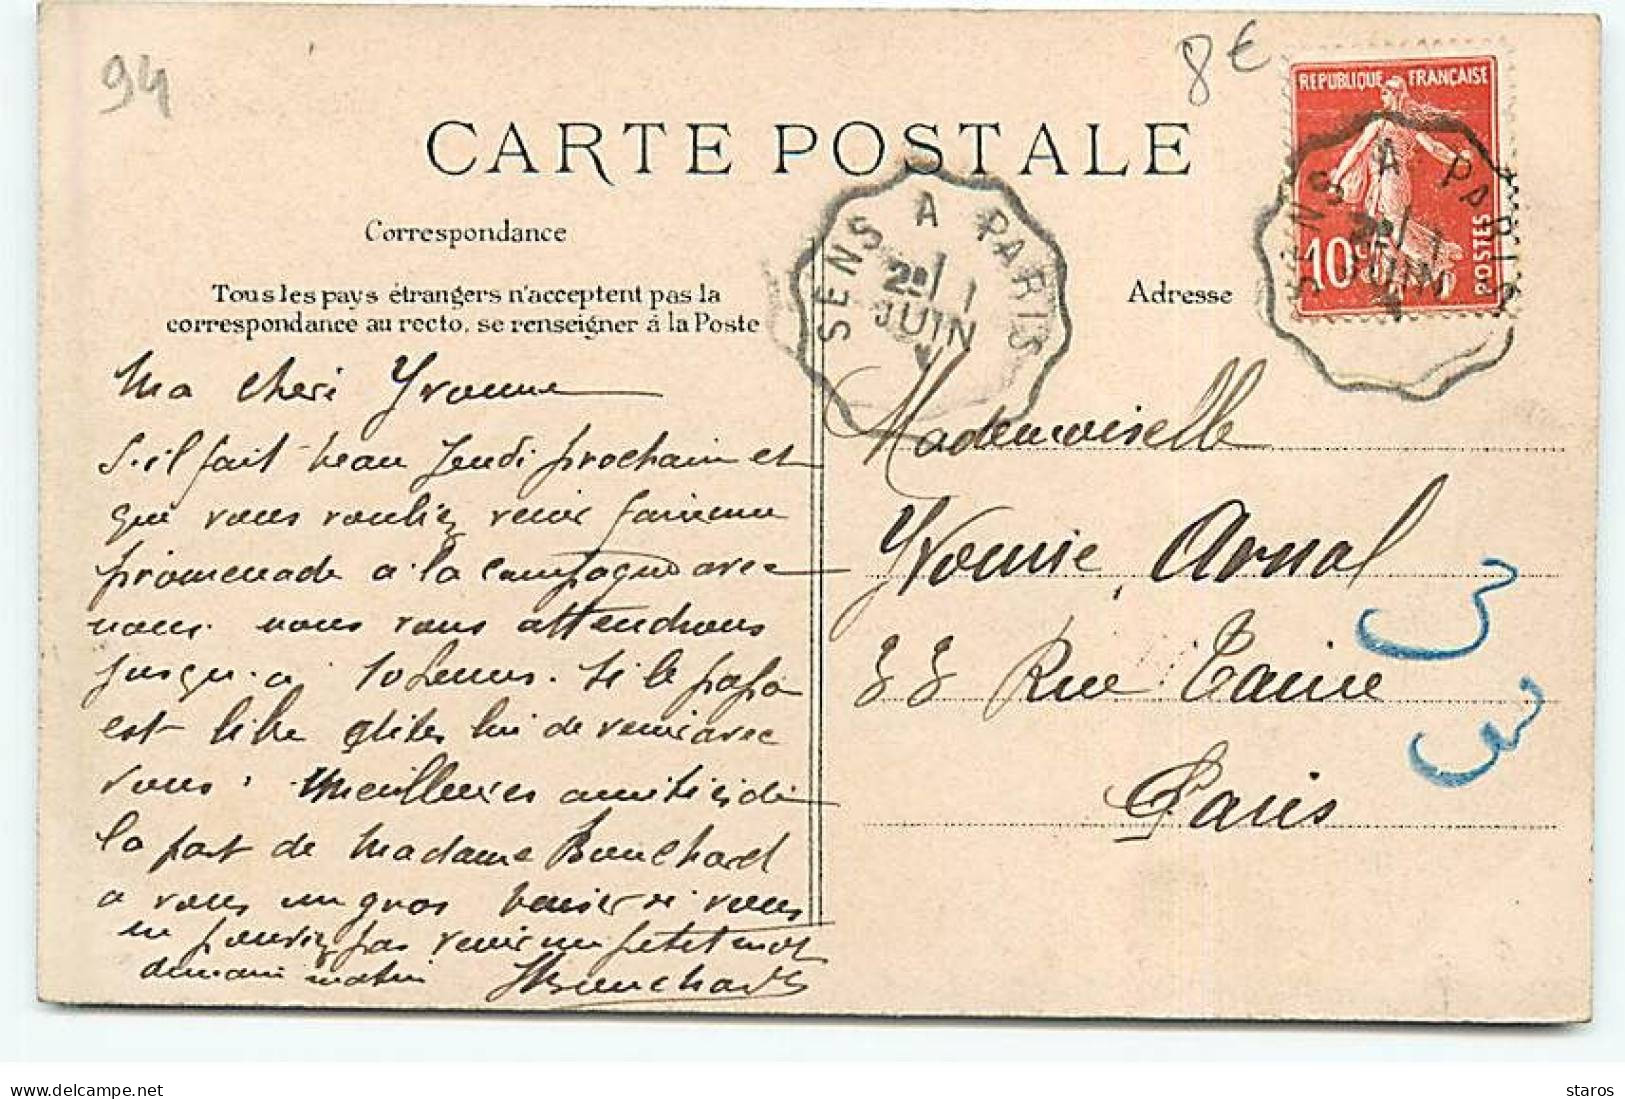 94
8€
CARTE POSTALE
REPUBLIQUE FRANÇAISE
10c
POSTES
SENS A PARIS
2º/1
JUIN
SENS A PARIS
2º/1
JUIN
Correspondance
Tous les pays étrangers n'acceptent pas la
correspondance au recto, se renseigner à la Poste
Adresse
Ma cheri Yvonne
S'il fait beau Jeudi prochain et
que vous vouliez venir faire une
promenade a la campagne avec
nous. nous vous attendrons
jusqu'a 10 heures. si le papa
est libre dites lui de venir avec
vous. Meilleures amitiés de
la part de Madame Bouchard
a vous un gros baiser si vous
ne pouviez pas venir un petit mot
demain matin HBouchard
Mademoiselle
Yvonne Arnal
33 Rue Taine
Paris
delcampe.net
staros